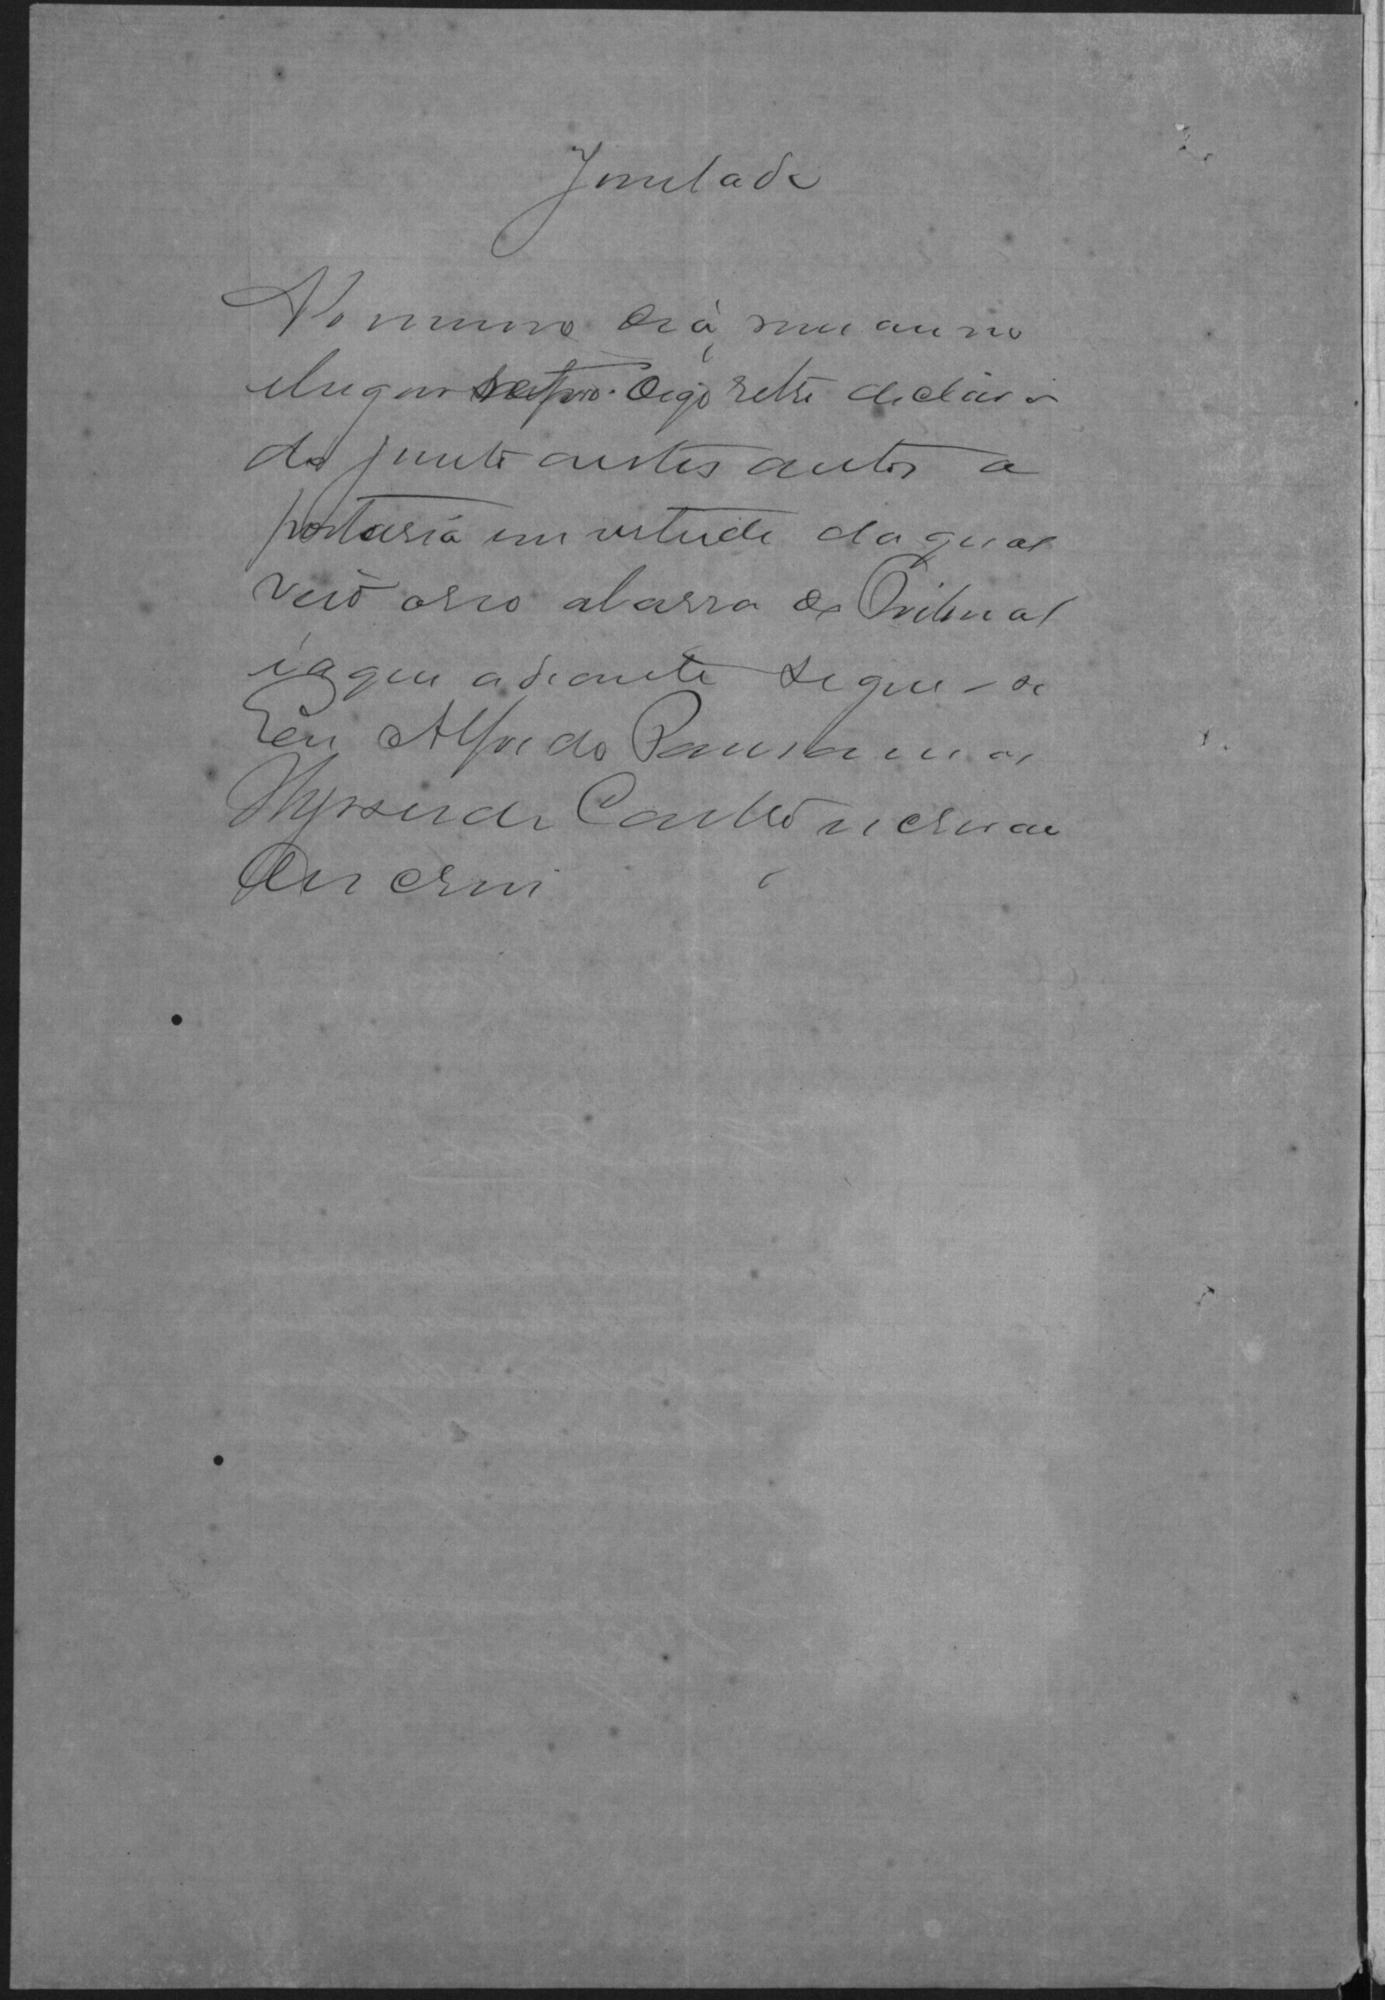 Juntada
No mesmo dia, mes anno
e lugar retro. digo retro declara
do junto a estes autos a
portaria em virtude da qual
veio o reo a barra do Tribunal
e que adiante segue-se
Eu Alfredo
de Castro escrivão
escrevi